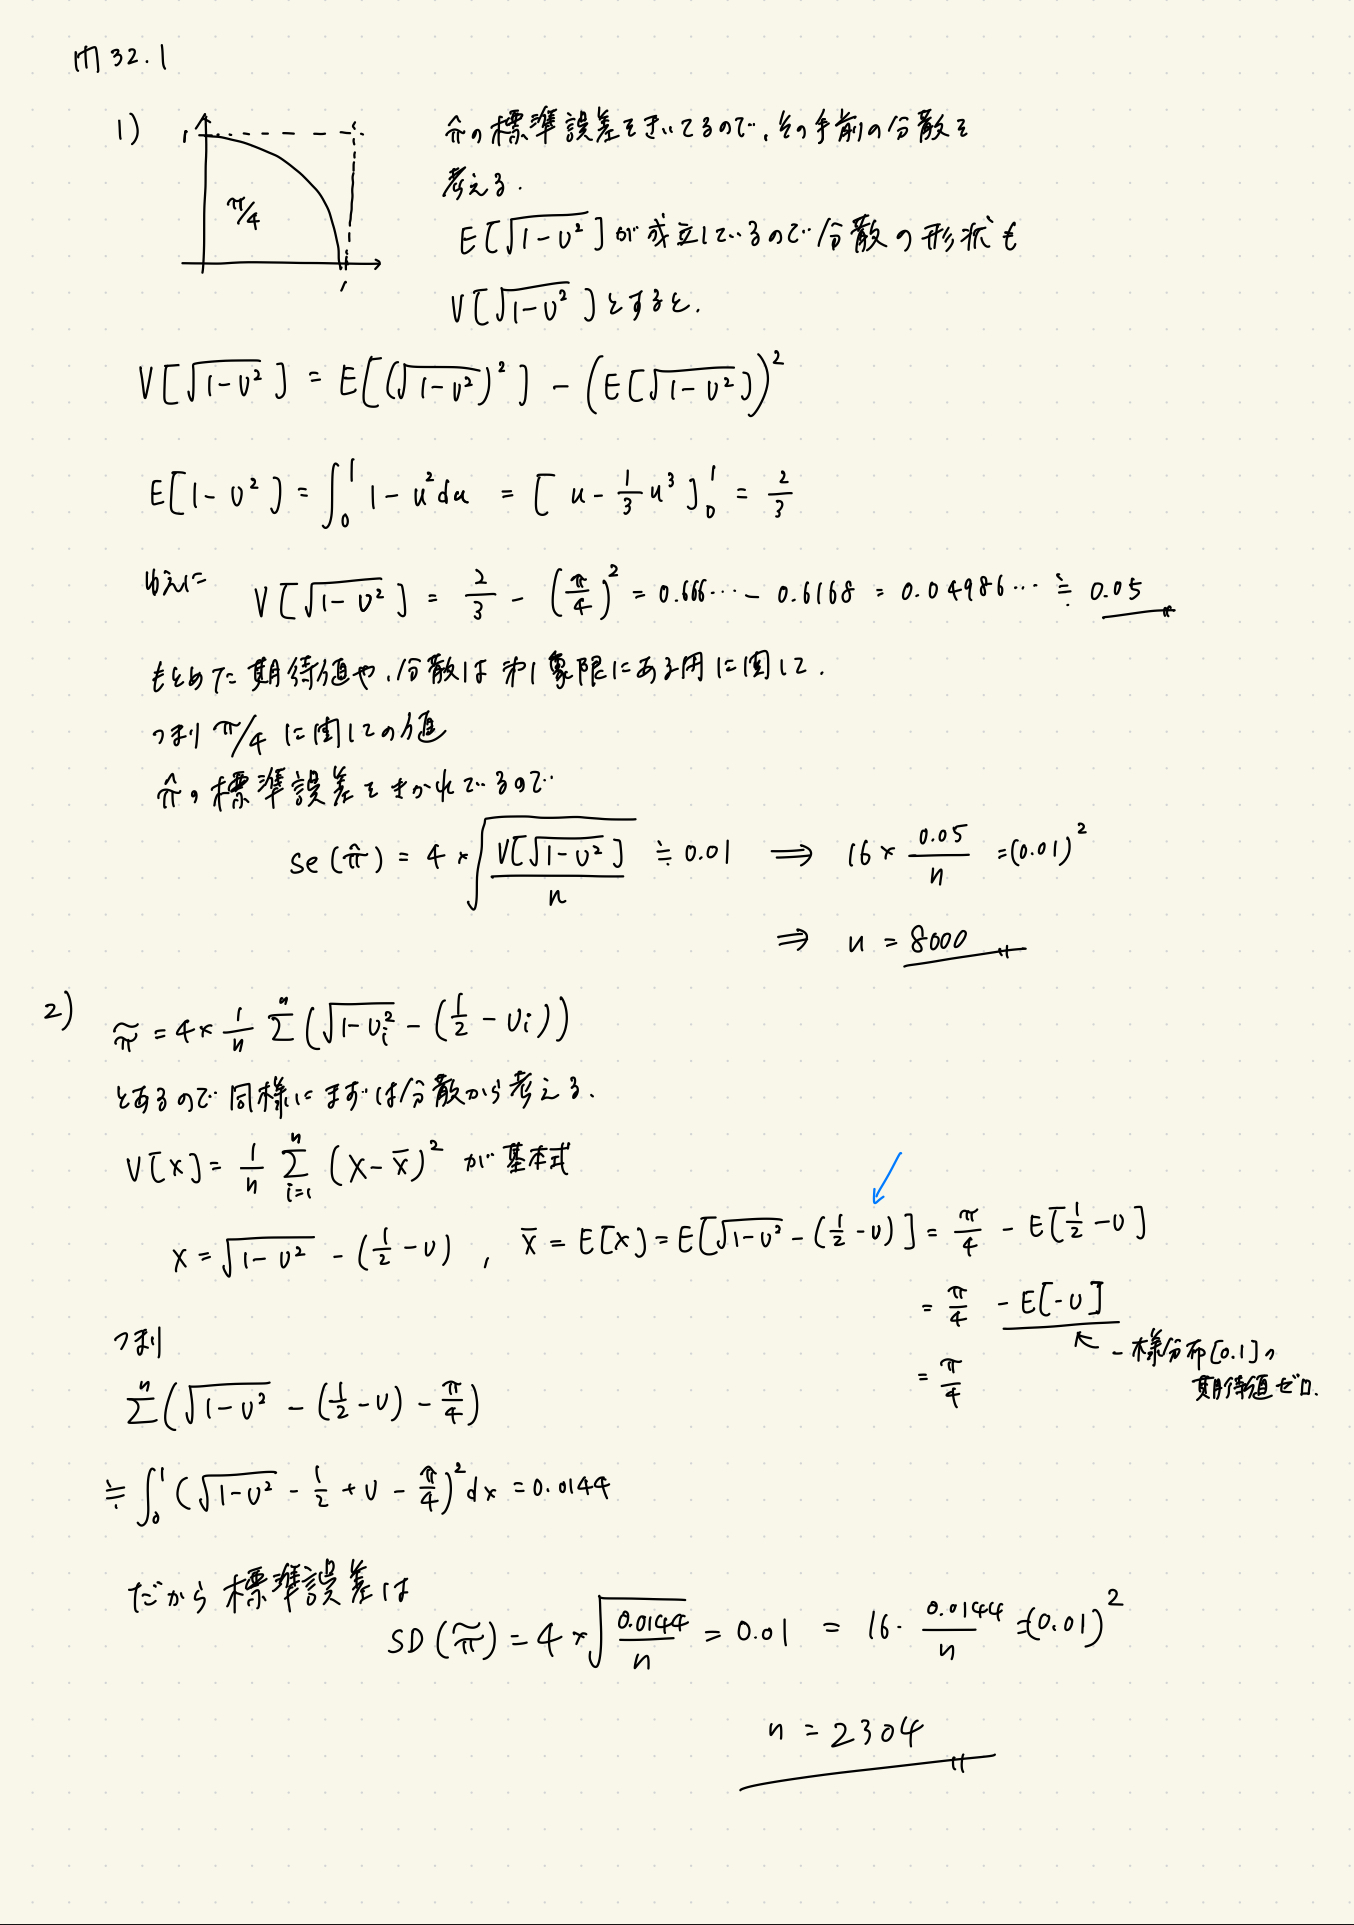 問 32.1
1)
1
π/4
1
π̂の標準誤差をきいてるので、その手前の分散を
考える.
E[√(1-U²)]が成立しているので分散の形状も
V[√(1-U²)]とすると.
V[√(1-U²)] = E[(√(1-U²))²] - (E[√(1-U²)])²
E[1-U²] = ∫₀¹ 1-u²du = [u - 1/3 u³]₀¹ = 2/3
ゆえに V[√(1-U²)] = 2/3 - (π/4)² = 0.666… - 0.6168 = 0.04986… ≒ 0.05
もとめた期待値や、分散は第1象限にある円に関して.
つまり π/4 に関しての値
π̂の標準誤差をきかれているので
se(π̂) = 4 × √(V[√(1-U²)]/n) ≒ 0.01 ⟹ 16 × 0.05/n = (0.01)²
⟹ n = 8000
2)
π̃ = 4 × 1/n Σⁿ(√(1-Ui²) - (1/2 - Ui))
とあるので同様にまずは分散から考える.
V[X] = 1/n Σⁿᵢ₌₁ (X - X̄)² が基本式
X = √(1-U²) - (1/2 - U) , X̄ = E[X] = E[√(1-U²) - (1/2 - U)] = π/4 - E[1/2 - U]
= π/4 - E[-U]
一様分布[0.1]の
期待値ゼロ.
= π/4
つまり
Σⁿ(√(1-U²) - (1/2 - U) - π/4)
≒ ∫₀¹ (√(1-U²) - 1/2 + U - π/4)² dx = 0.0144
だから標準誤差は
SD(π̃) = 4 × √(0.0144/n) = 0.01 = 16 · 0.0144/n = (0.01)²
n = 2304